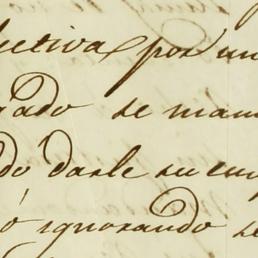 lectiva por un
gado se man
do darle su emp
ó ignorando se